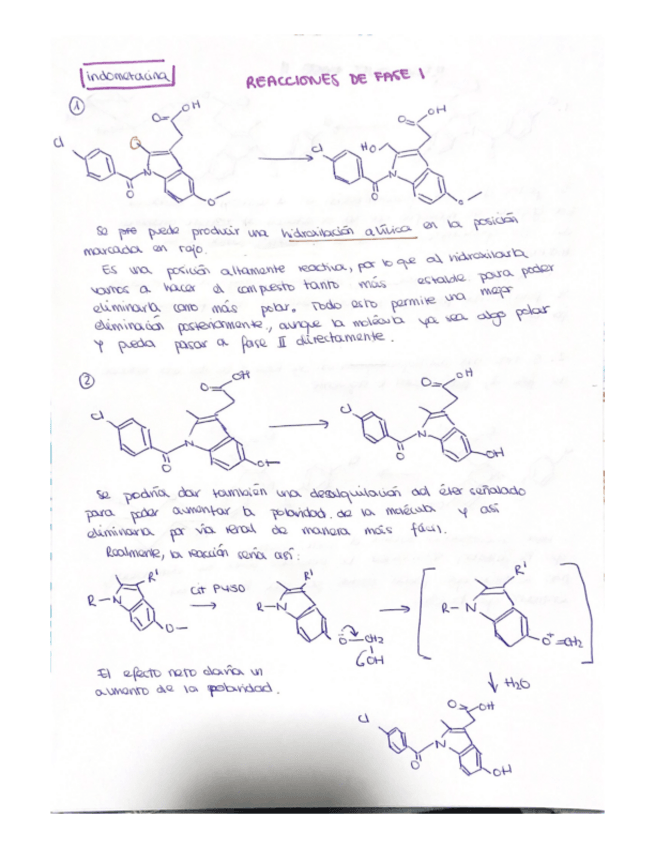 indometacina
REACCIONES DE FASE I
①
OH
O
Cl
N
O
O
OH
O
Cl
HO
N
O
O
Se pre puede producir una hidroxilación alílica en la posición
marcada en rojo.
Es una posición altamente reactiva, por lo que al hidroxilarla
vamos a hacer el compuesto tanto más estable para poder
eliminarla como más polar. Todo esto permite una mejor
eliminación posteriormente, aunque la molécula ya sea algo polar
y pueda pasar a fase II directamente.
②
OH
O
Cl
N
O
O
OH
O
Cl
N
O
OH
Se podría dar también una desalquilación del éter señalado
para poder aumentar la polaridad de la molécula y así
eliminarla por vía renal de manera más fácil.
Realmente, la reacción sería así:
R-N
R'
O
Cit P450
R-N
R'
O-CH2
OH
R-N
R'
O+=CH2
El efecto neto daría un
aumento de la polaridad.
H2O
OH
O
Cl
N
O
OH